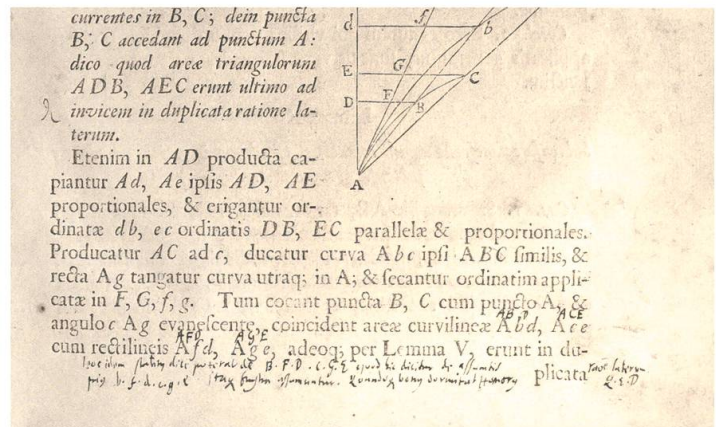 currentes in B, C; dein puncta
B, C accedant ad punctum A:
dico quod areæ triangulorum
ADB, AEC erunt ultimo ad
invicem in duplicata ratione la-
terum.
Etenim in AD producta ca-
piantur Ad, Ae ipsis AD, AE
proportionales, & erigantur or-
dinatæ db, ec ordinatis DB, EC parallelæ & proportionales.
Producatur AC ad c, ducatur curva Abc ipsi ABC similis, &
recta Ag tangatur curva utraq; in A; & secantur ordinatim appli-
catæ in F, G, f, g. Tum coeant puncta B, C cum puncto A, &
ABD ACE
angulo c Ag evanescente, coincident areæ curvilineæ Abd, Ace
AFD AGE
cum rectilineis Afd, Age, adeoq; per Lemma V, erunt in du-
B. F. D. C. G. E
b. f. d. c. g. e
plicata
laterum
Q. E. D
d
f
b
E
G
C
D
F
B
A